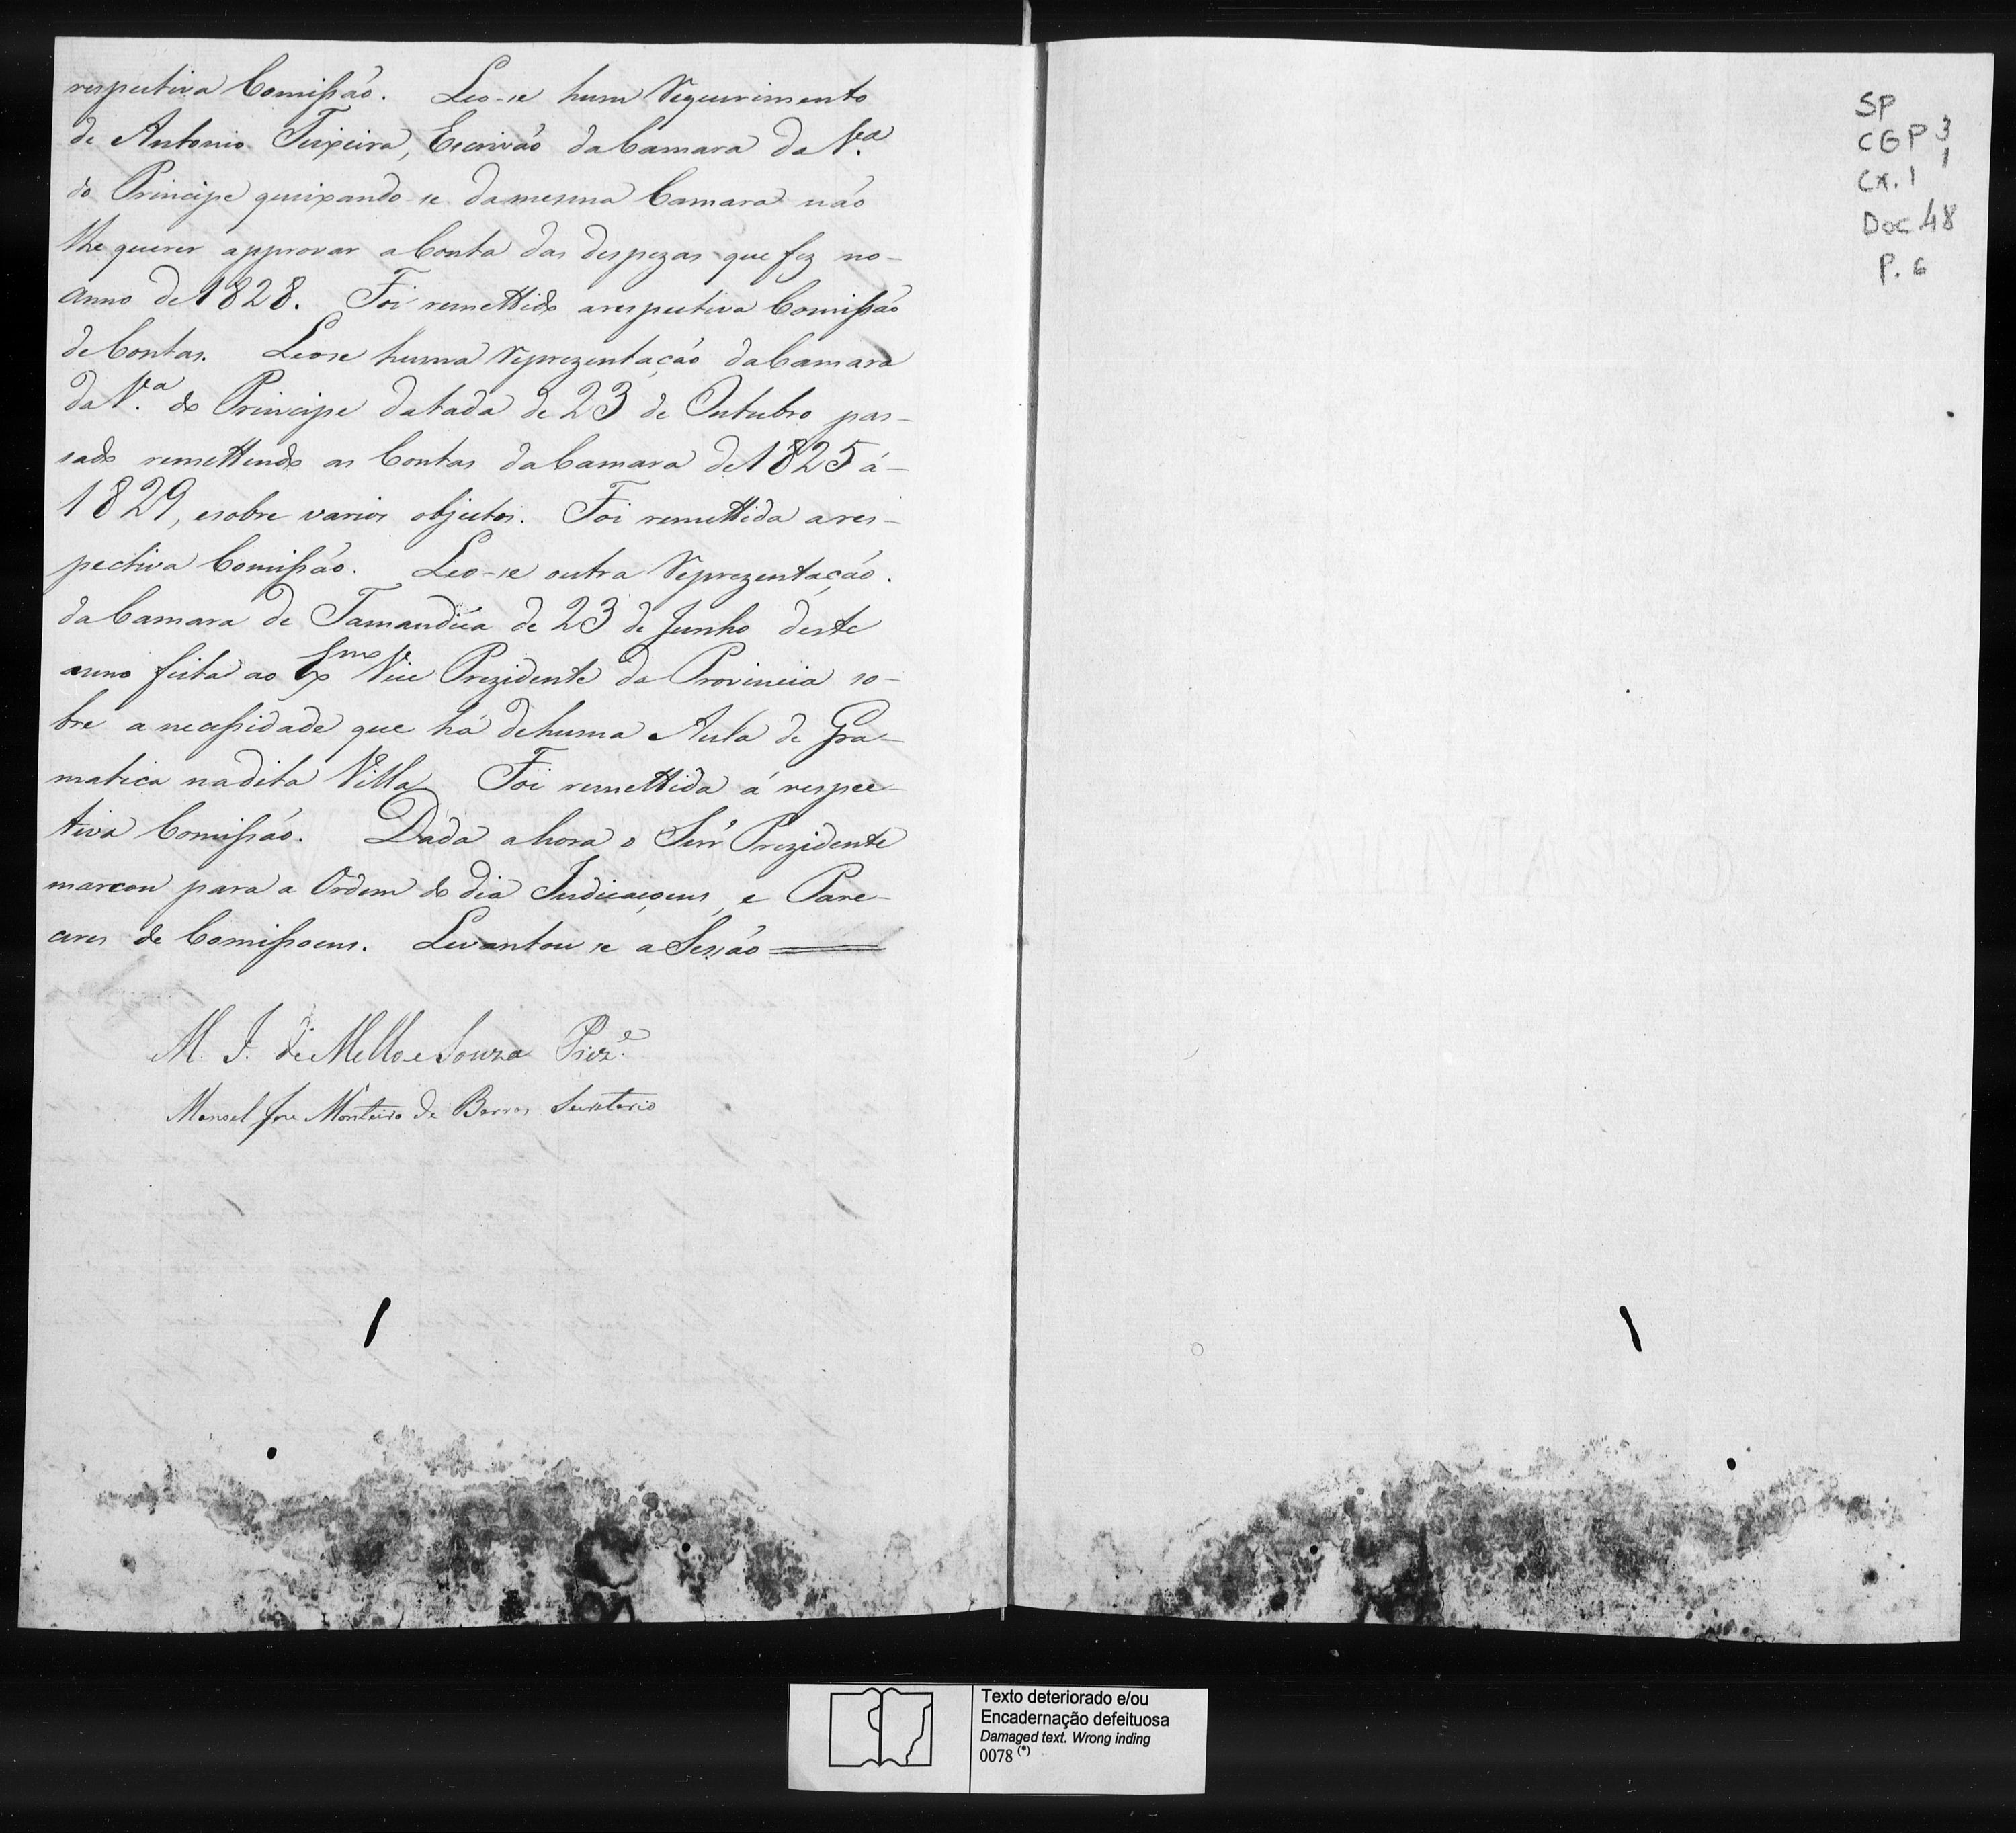 respectiva Comissão. Leo-se hum Requerimento
de Antonio Teixeira, Escrivão da Camara da V.ª
do Principe queixando-se da mesma Camara não
lhe querer approvar a Conta das despezas que fez no-
anno de 1828. Foi remettido a respectiva Comissão
de Contas. Leose huma Reprezentação da Camara
da V.ª do Principe datada de 23 de Outubro pas-
sado remettendo as Contas da Camara de 1825 á-
1829, e sobre varios objectos. Foi remettida a res-
pectiva Comissão. Leo-se outra Reprezentação.
da Camara de Tamanduá de 23 de Junho deste
anno feita ao Exmo Vice Prezidente da Provincia so-
bre a necessidade que há de huma Aula de Gra-
matica na dita Villa Foi remettida á respec-
tiva Comissão. Dada a hora o Senr Prezidente
marcou para a Ordem do dia Indicaçoens, e Pare-
ceres de Comissoens. Levantou se a Sessão
M. I. de Mello e Souza Prez.e
Manoel Jose Monteiro de Barros Secretario
SP
CGP 3
1
Cx. 1
Doc. 48
P. 6
Texto deteriorado e/ou
Encadernação defeituosa
Damaged text. Wrong inding
0078 (*)